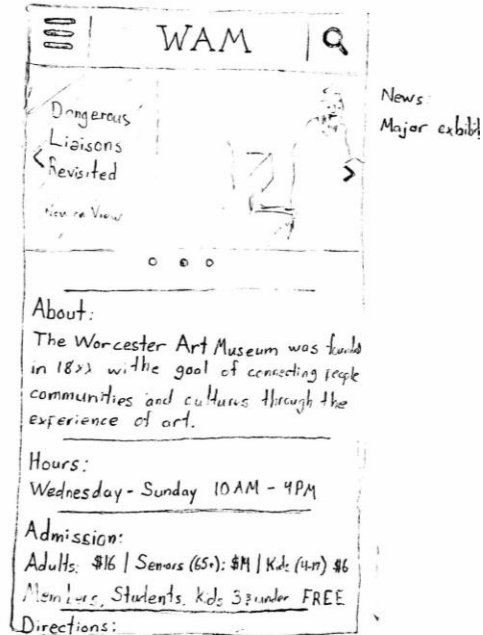 WAM
News:
Major exhibit
Dangerous
Liaisons
Revisited
Now on View
About:
The Worcester Art Museum was founded
in 18>> withe goal of connecting people
communities and cultures through the
experience of art.
Hours:
Wednesday - Sunday 10 AM - 4 PM
Admission:
Adults: $16 | Seniors (65+): $14 | Kids (4-17) $6
Members, Students, Kids 3 & under FREE
Directions: